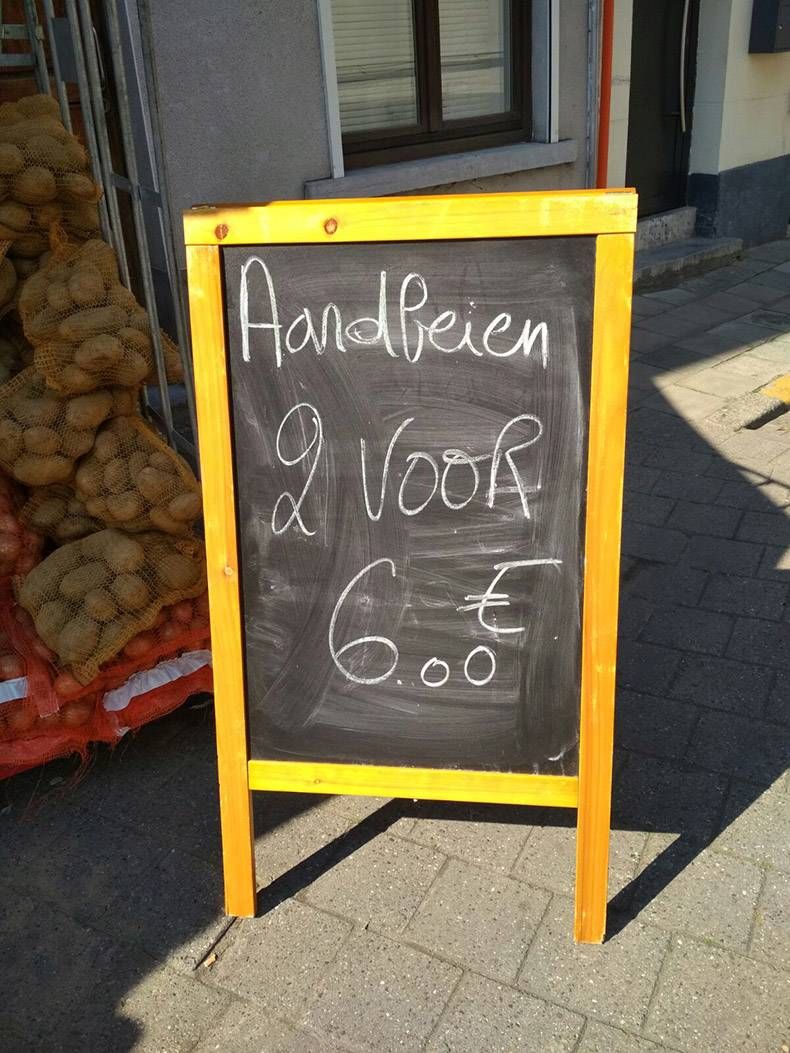 Aardbeien
2 VOOR
6.00 €